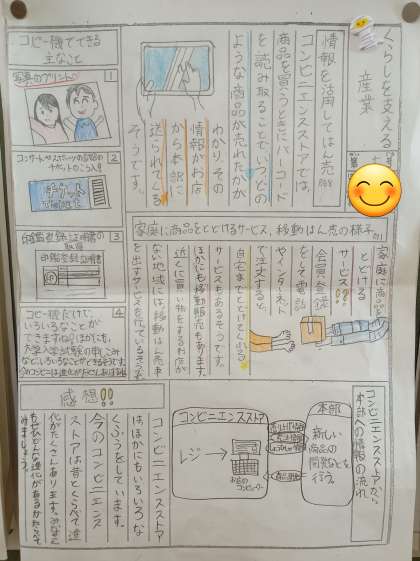 くらしを支える
産業
第七号
情報を活用してはん売
コンビニエンスストアでは、
商品を買うときにバーコード
を読み取ることで、いつどの
ような商品が売れたかが
わかり、その
情報がお店
から本部に
送られてくる
そうです。
コピー機でできる
主なこと
写真のプリント
1
コンサートやスポーツの試合の
チケットのこう入
2
チケット
印鑑登録証明書の
取得
3
印鑑登録証明書
4
コピー機だけで、
いろいろなことが
できますね。ほかにも、
大学入学試験の申しこみ
など、いろいろなことができるそうです。
家庭に商品をとどけるサービス、移動はん売の様子
家庭に商品を
とどける
サービス!!
会員登録
をして電話
やインターネット
で注文すると、
自宅までとどけてくれる
サービスもあるそうです。
ほかにも移動販売もあります。
近くに買い物をするお店が
ない地域には、移動はん売車
を出すサービスを行っているそうです。
コンビニエンスストアから
本部への情報の流れ
コンビニエンスストア
レジ→
お店の
コンピューター
本部
新しい
商品の
開発などを
行う。
感想!!
コンビニエンスストア
はほかにもいろいろな
くふうをしています。
今のコンビニエンス
ストアは昔とくらべて進
化がたくさんあります。みなさん
もぜひどんな進化があるかしらべて
みましょう。